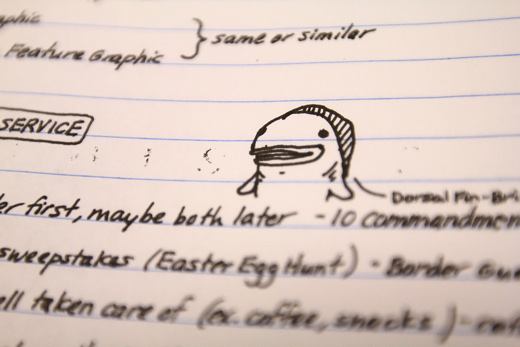 Feature Graphic } same or similar
SERVICE
Dorsal Fin-
first, maybe both later - 10 commandmen
sweepstakes (Easter Egg Hunt) - Border
taken care of (ex. coffee, snacks) -